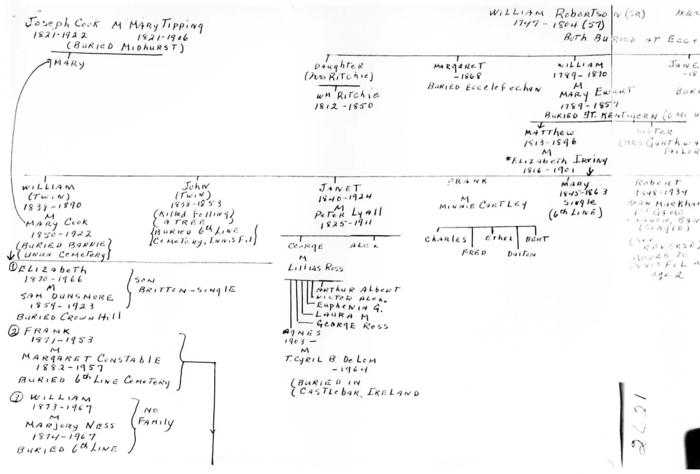 Joseph Cook M Mary Tipping
1821-1922 1821-1906
(BURIED MIDHURST)
MARY
WILLIAM Robertson (SR)
1747-1804 (57)
BOTH BURIED AT ECCE
DAUGHTER
(Mrs RITCHIE)
Wm RITCHIE
1812-1850
MARGARET
-1868
BURIED Eccelefechan
WILLIAM
1789-1870
M
MARY EWART
1789-1857
BURIED ST. KENTIGERN
JANE
MATTHEW
1813-1896
M
*Elizabeth Irving
1816-1901
SISTER
WILLIAM
(TWIN)
1838-1890
M
MARY COOK
1850-1922
(BURIED BARRIE)
(UNION CEMETERY)
John
(TWIN)
1838-1853
(Killed Felling)
A TREE
BURIED 6th LINE
Cemetery, Innisfil
JANET
1840-1924
M
PETER LYALL
1825-1911
FRANK
M
MINNIE CARTLEY
MARY
1845-1863
Single
(6th LINE)
Robert
1848-1934
(SINGLE)
(SEE
REVERSE)
MOVED TO
INNISFIL
age 2
CHARLES
FRED
ETHEL
DALTON
BERT
GEORGE
ALEX
M
LILLIAS ROSS
ARTHUR ALBERT
VICTOR ALEX.
EUPHENIA G.
LAURA M
GEORGE ROSS
AGNES
1903-
M
T. CYRIL B DE LOM
-1964
(BURIED IN
CASTLEBAR, IRELAND
① ELIZABETH
1870-1966
M
SAM DUNSMORE
1859-1923
BURIED CROWN HILL
SON
BRITTON-SINGLE
② FRANK
1871-1953
M
MARGARET CONSTABLE
1882-1957
BURIED 6th LINE CEMETERY
⑦ WILLIAM
1873-1967
M
MARJORY NESS
1874-1967
BURIED 6th LINE
NO
FAMILY
2621